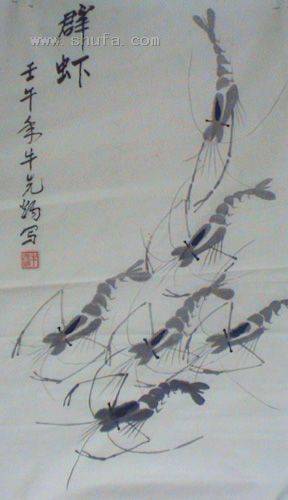 群虾
壬午年牛先炀写
www.shufa.com